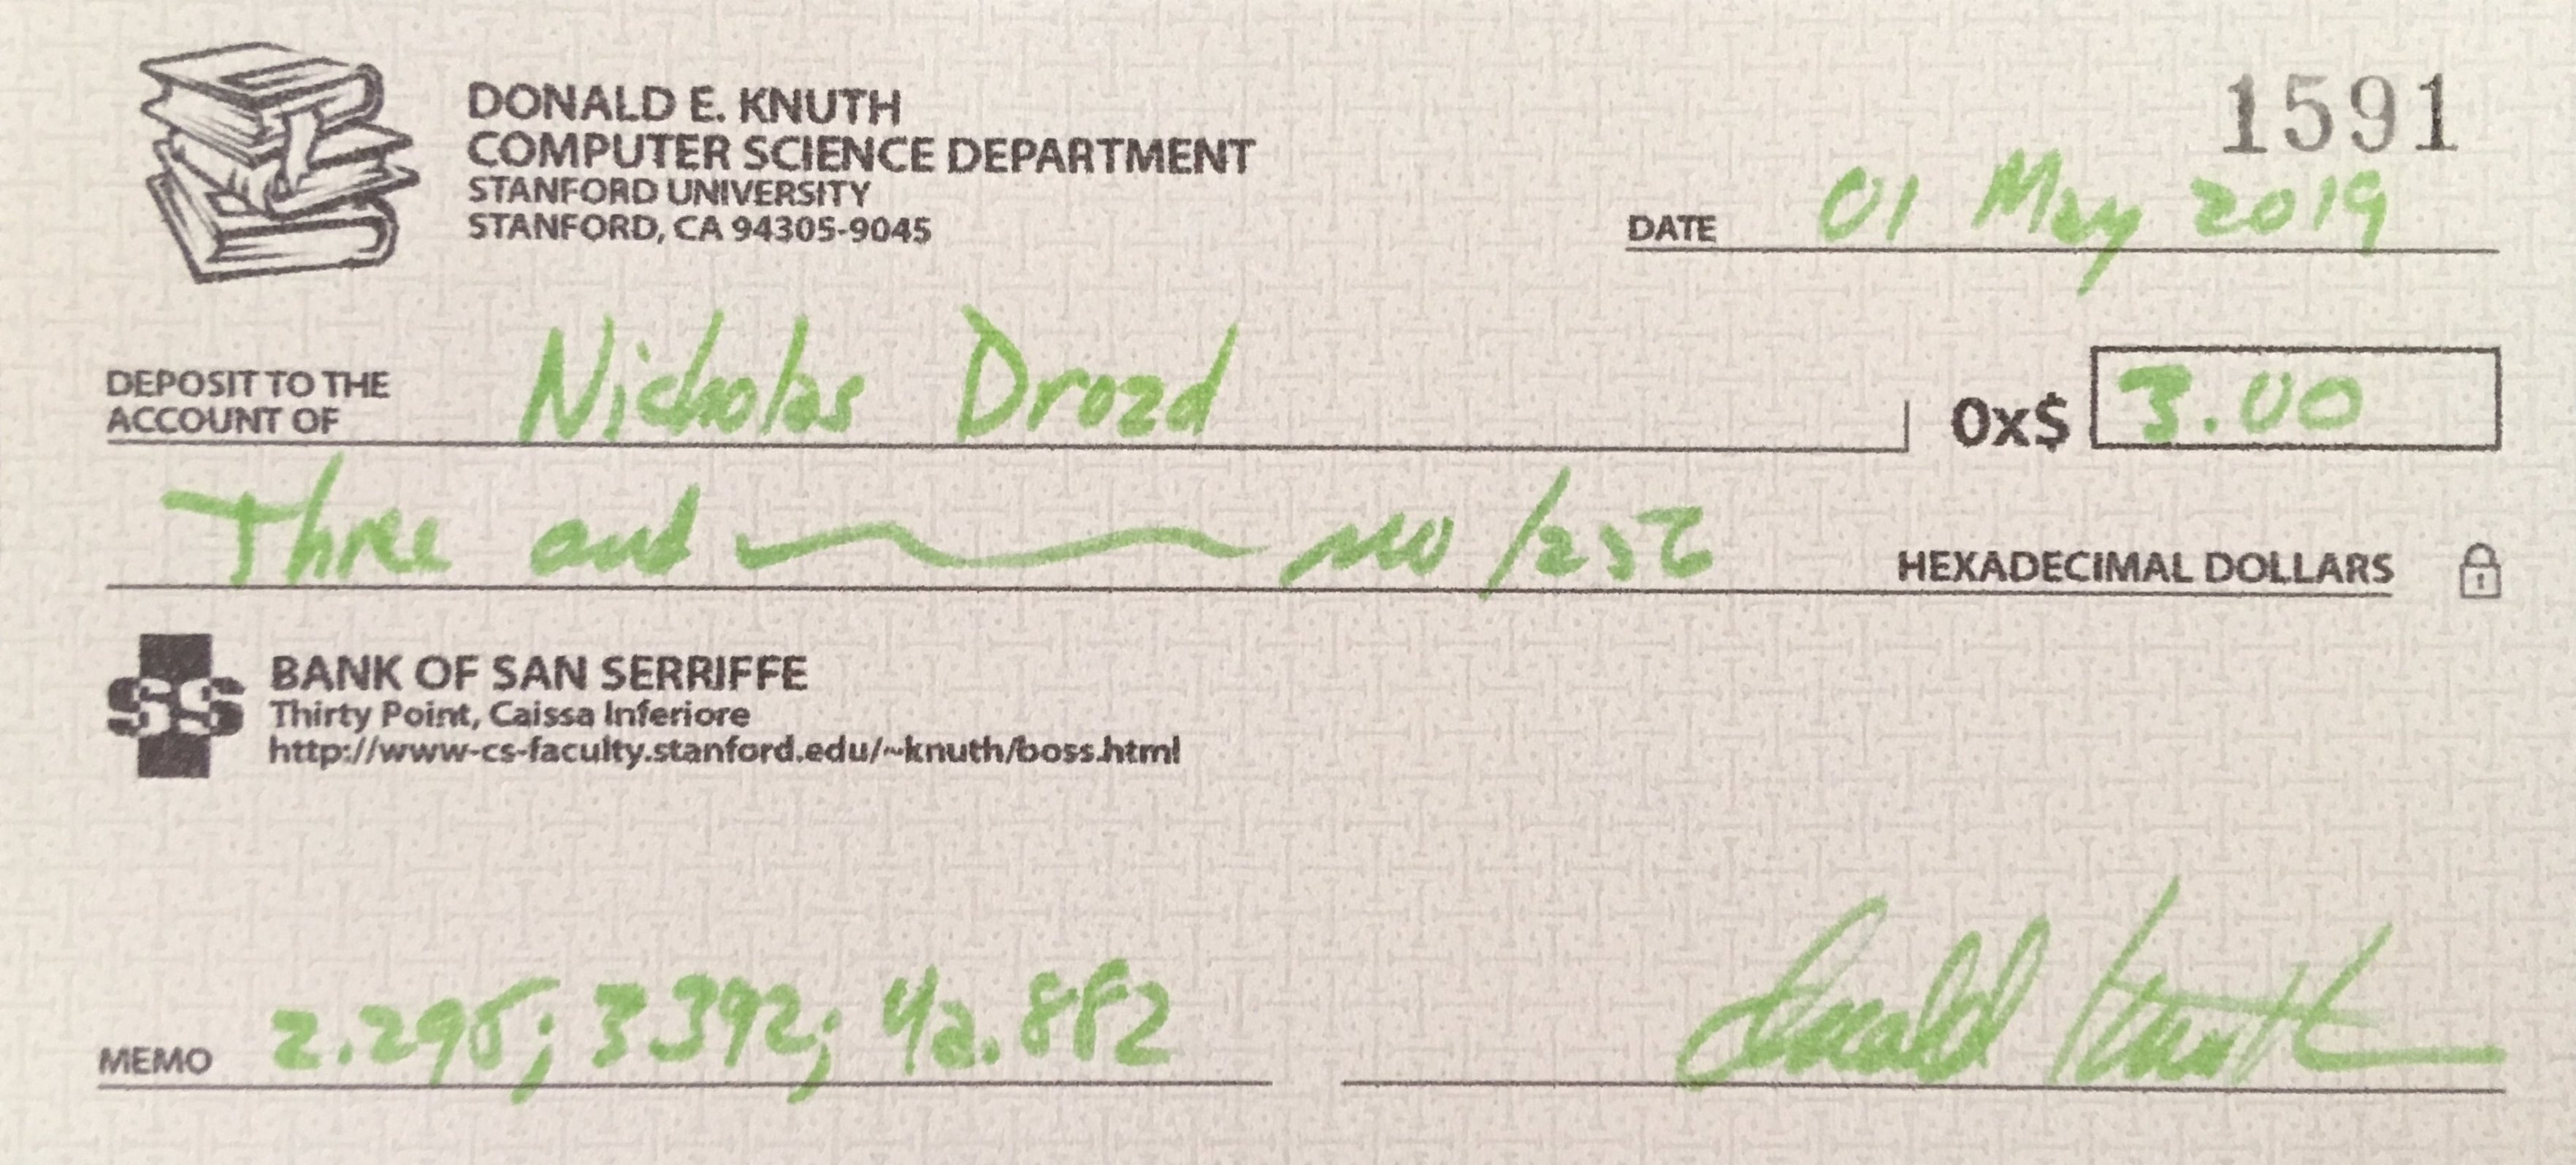 DONALD E. KNUTH
COMPUTER SCIENCE DEPARTMENT
STANFORD UNIVERSITY
STANFORD, CA 94305-9045
1591
DATE 01 May 2019
DEPOSIT TO THE
ACCOUNT OF Nicholas Drozd
0x$ 3.00
Three and no/256 HEXADECIMAL DOLLARS
SS
BANK OF SAN SERRIFFE
Thirty Point, Caissa Inferiore
http://www-cs-faculty.stanford.edu/~knuth/boss.html
MEMO 2.295; 3.392; 4a.882
Donald Knuth